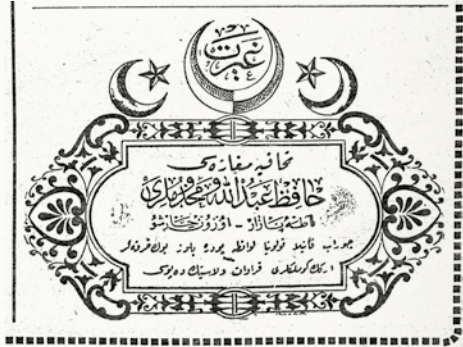 غيرت
تحافيه مغازه‌سى
حافظ عبدالله و مخدوملرى
آطه پازار - اوزون چارشو
چوراب فانيلا قولونيا لوانطه پودره بلوز يوك فرفه‌لر
اركك كوملكلرى قراوات و لاستيك ده‌پوسى